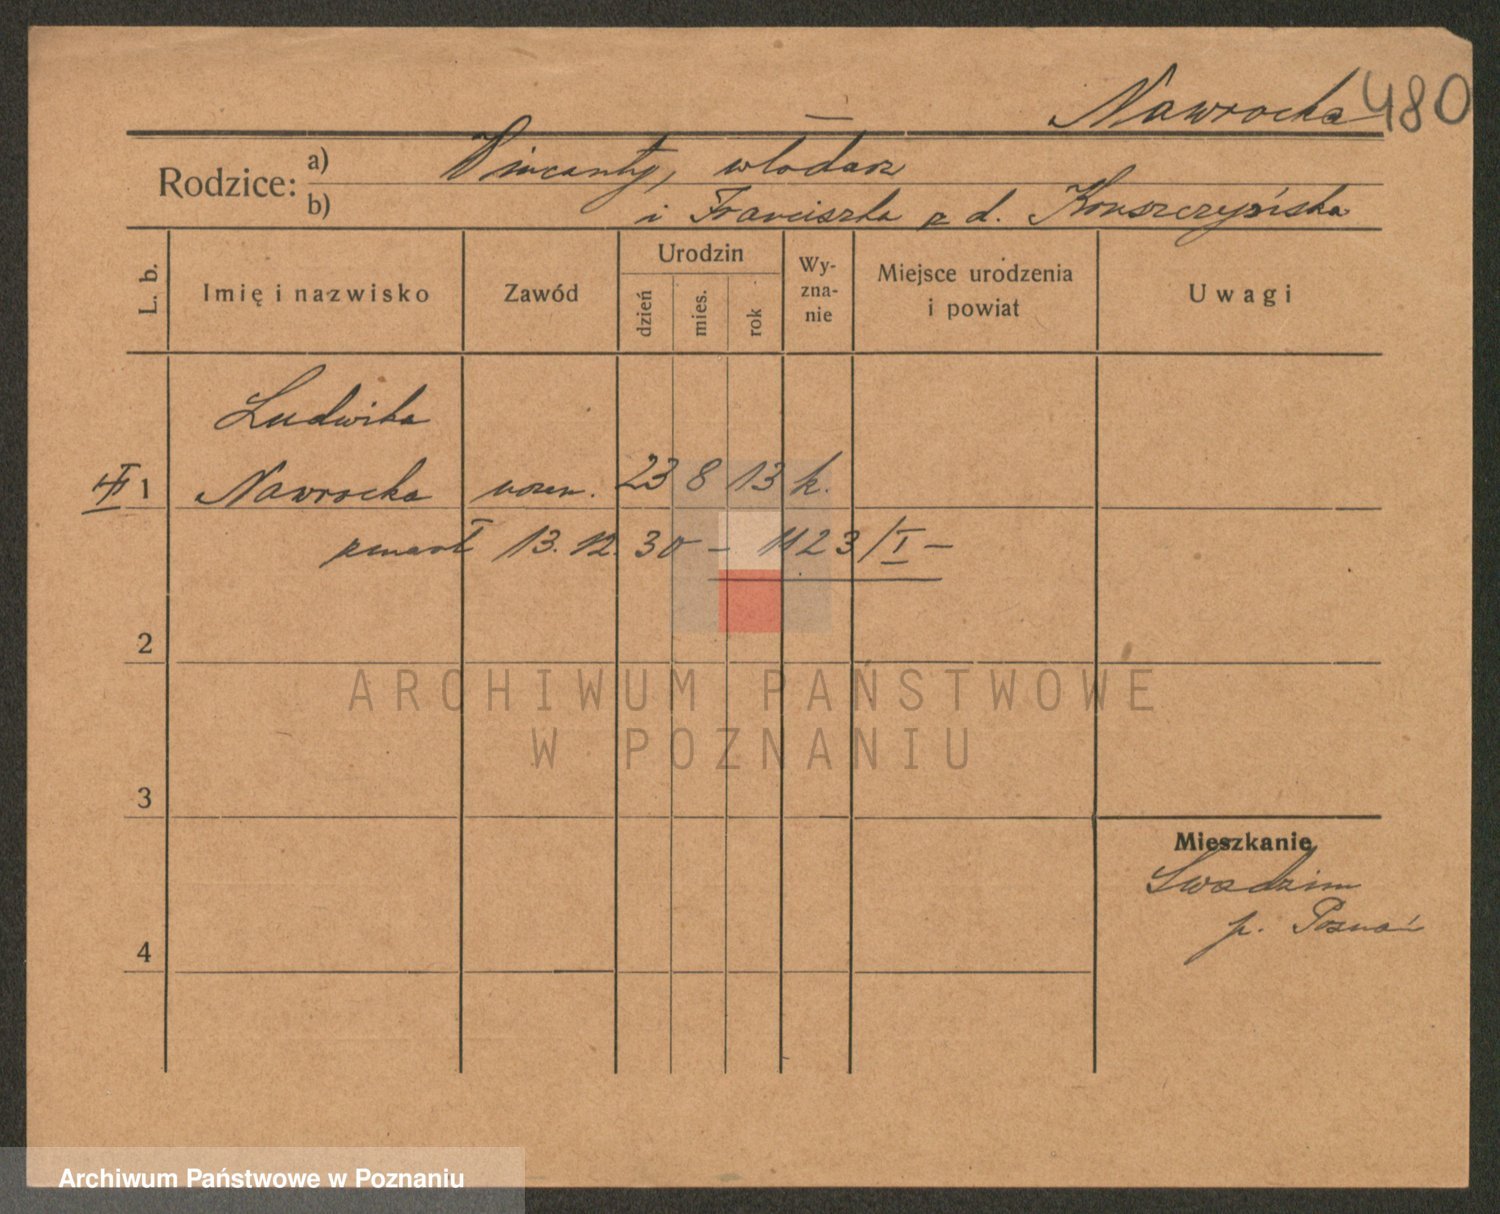 Nawrocka 480
Rodzice: a) Wincenty, włodarz
b) i Franciszka z d.
L. b.
Imię i nazwisko
Zawód
Urodzin
dzień
mies.
rok
Wy-
zna-
nie
Miejsce urodzenia
i powiat
Uwagi
Ludwika
1 Nawrocka uczen. 23 8 13 k.
zmarł 13. 12. 30 – 1123/I –
2
3
4
Mieszkanie
Swadzim
p. Poznań
ARCHIWUM PAŃSTWOWE
W POZNANIU
Archiwum Państwowe w Poznaniu